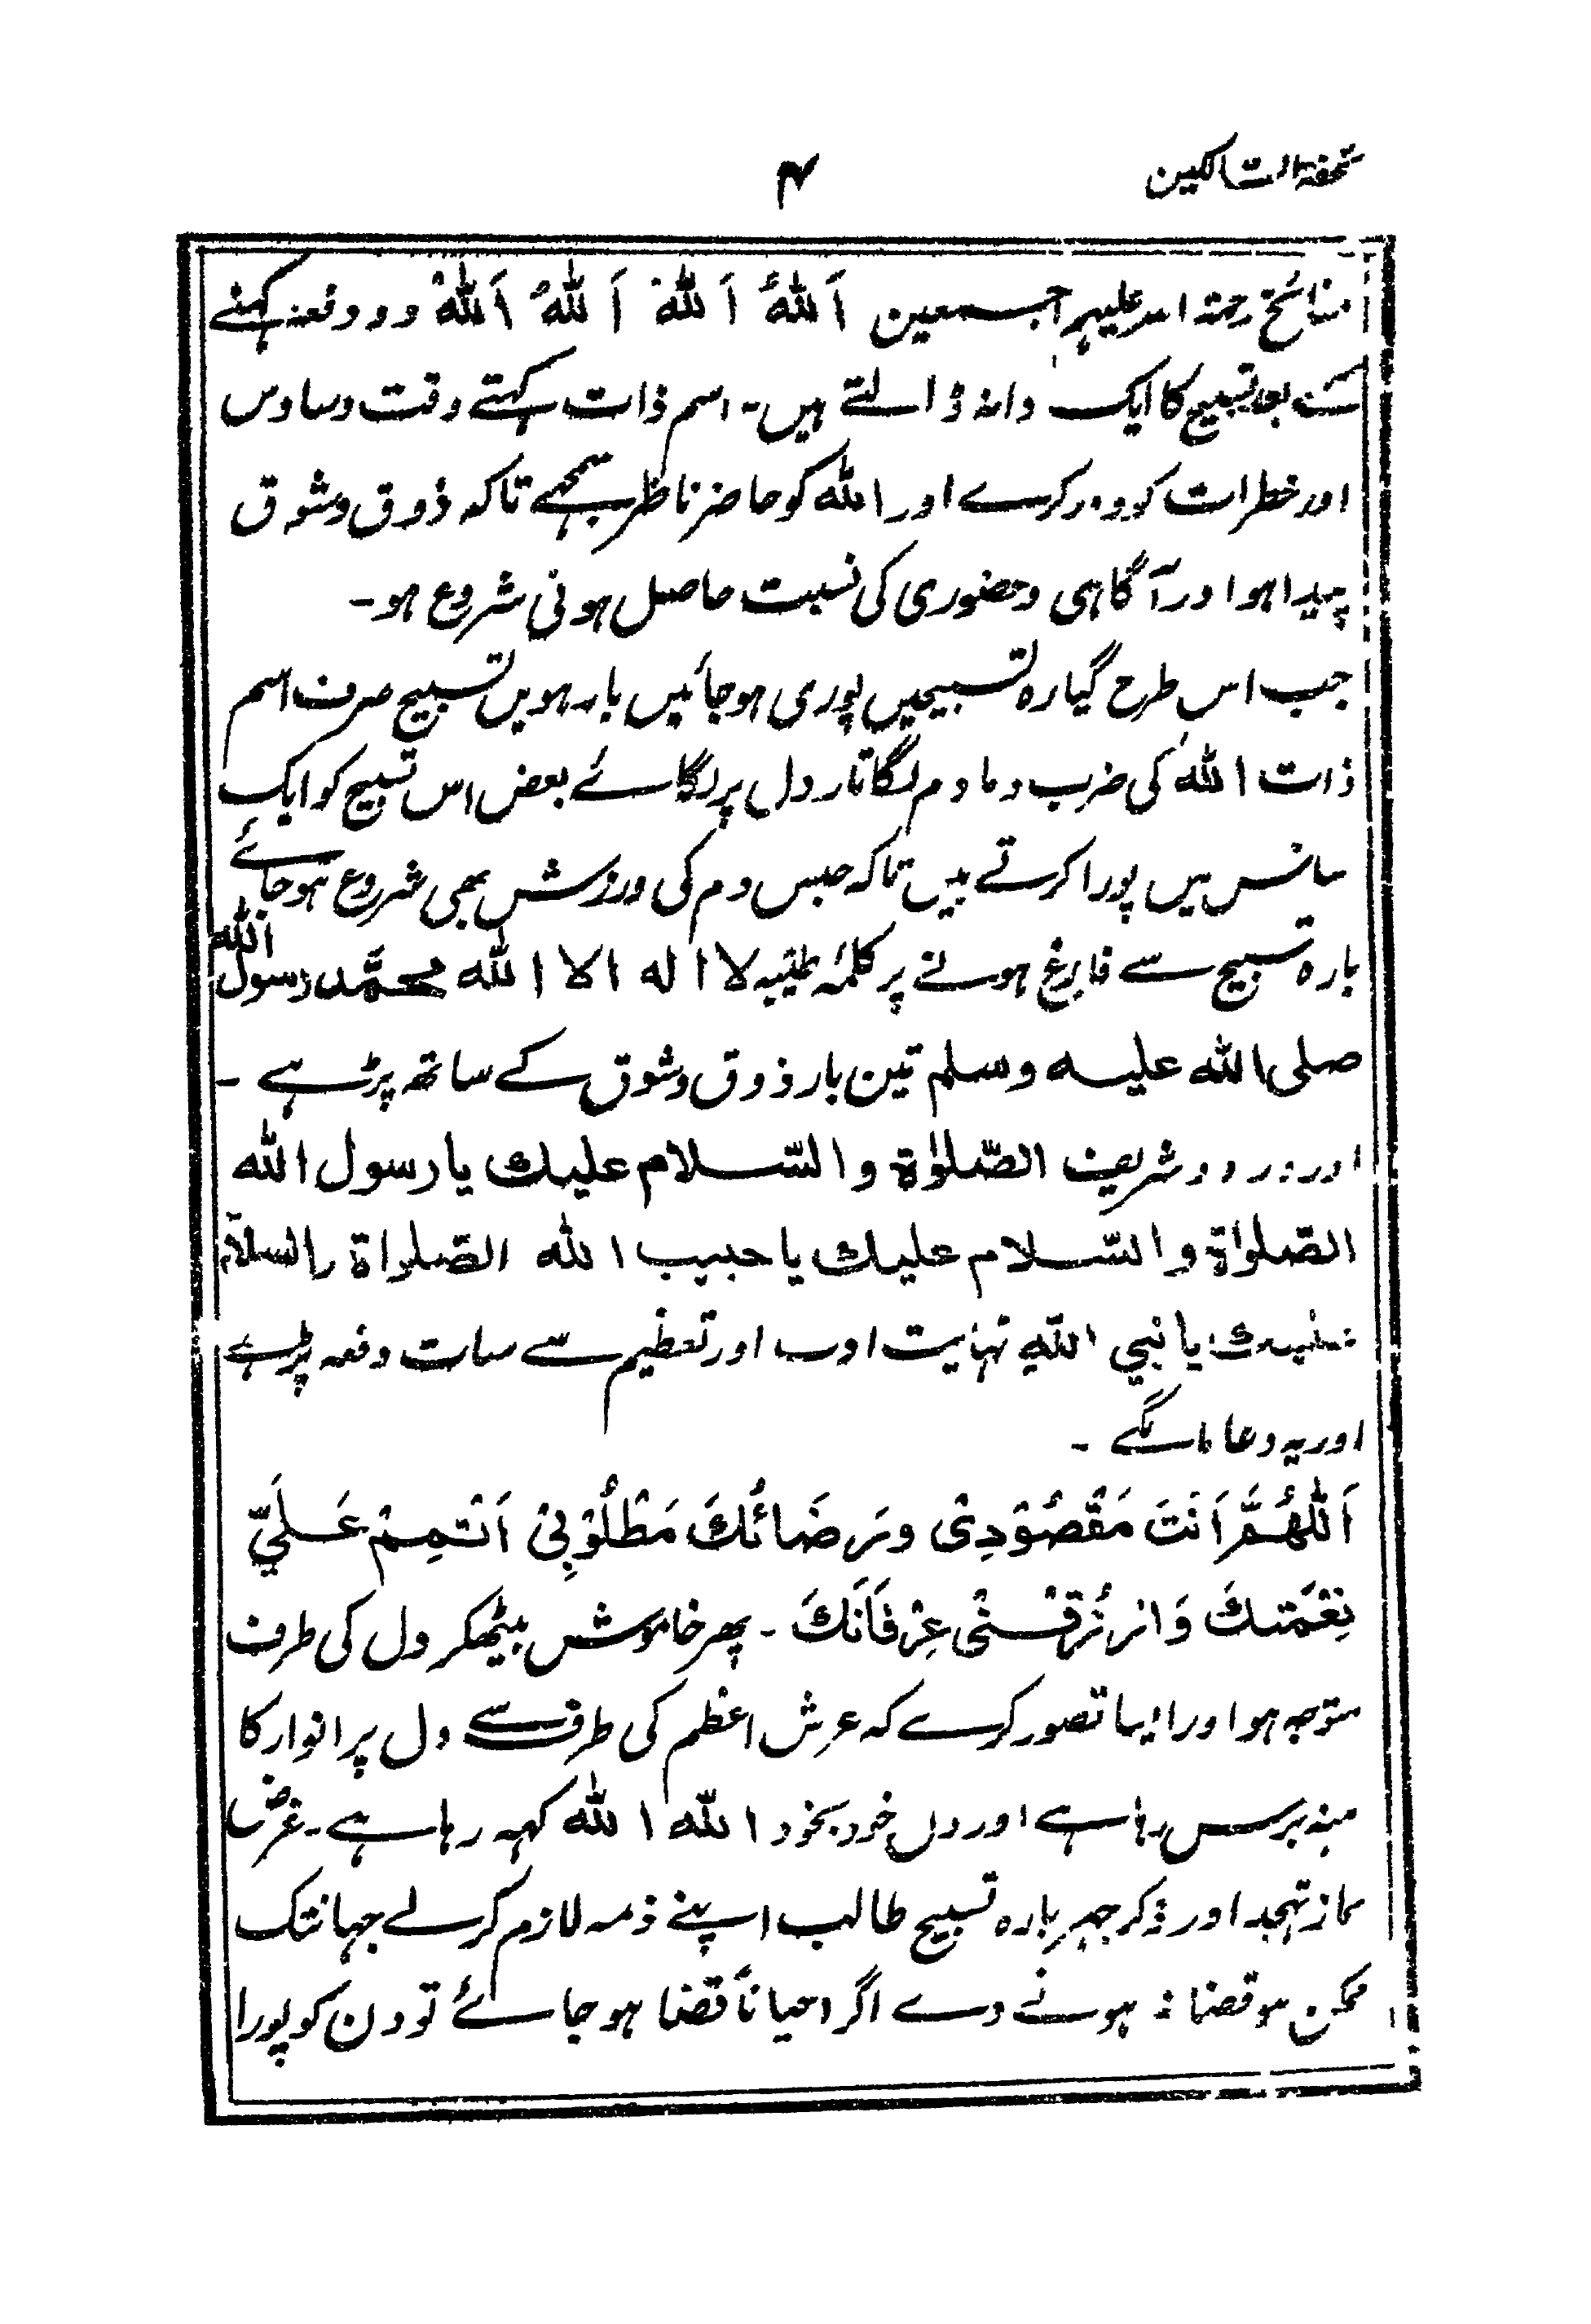 تحفۃ السالکین
۴
مشائخ رحمۃ اللہ علیہم اجمعین اَللّٰہُ اَللّٰہُ اَللّٰہُ اَللّٰہُ دو دفعہ کہنے
کے بعد تسبیح کا ایک دانہ ڈالتے ہیں۔ اسم ذات کہتے وقت وساوس
اور خطرات کو دور کرے اور اللہ کو حاضر ناظر سمجھے تاکہ ذوق وشوق
پیدا ہوا ور آگاہی وحضوری کی نسبت حاصل ہونی شروع ہو۔
جب اس طرح گیارہ تسبیحیں پوری ہوجائیں بارہویں تسبیح صرف اسم
ذات اللہ کی ضرب دمادم لگاتار دل پر لگائے بعض اس تسبیح کو ایک
سانس میں پورا کرتے ہیں تاکہ حبس دم کی ورزش بھی شروع ہوجائے
بارہ تسبیح سے فارغ ہونے پر کلمۂ طیّبہ لا الہ الا اللہ محمّد رسول اللہ
صلی اللہ علیہ وسلم تین بار ذوق وشوق کے ساتھ پڑہے ۔
اور درود شریف الصّلوٰۃ والسّلام علیك یا رسول اللہ
الصّلوٰۃ والسّلام علیك یا حبیب اللہ الصّلواۃ والسلام
علیك یا نبي اللہِ نہایت ادب اور تعظیم سے سات دفعہ پڑہے
اور یہ دعا مانگے ۔
اَللّٰهُمَّ اَنْتَ مَقْصُوْدِیْ ورَضَائُكَ مَطْلُوْبِیْ اَتْمِمْ عَلَيّ
نِعْمَتَكَ وَارْزُقْنِیْ عِرْفَانَكَ ۔ پھر خاموش بیٹھکر دل کی طرف
متوجہ ہوا ور ایسا تصور کرے کہ عرش اعظم کی طرف سے دل پر انوار کا
مینہ برس رہا ہے اور دل خود بخود اللہ اللہ کہہ رہا ہے۔ غرض
نماز تہجد اور ذکر جہرِ بارہ تسبیح طالب اپنے ذمہ لازم کرلے جہانتک
ممکن ہو قضا نہ ہونے دے اگر احیاناً قضا ہوجائے تو دن کو پورا